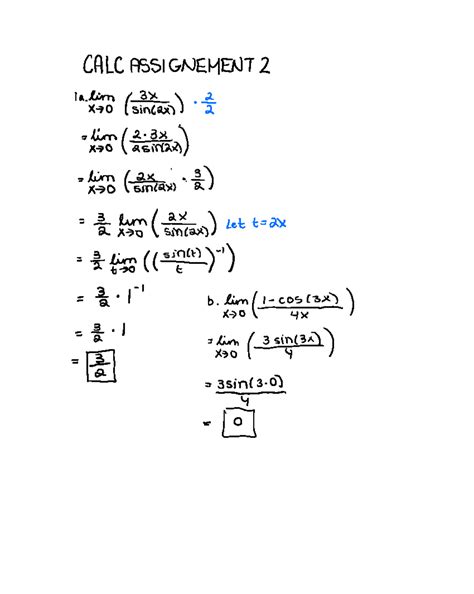 CALC ASSIGNEMENT 2
1a. lim x→0 (3x / sin(2x)) · 2/2
= lim x→0 (2·3x / 2sin(2x))
= lim x→0 (2x / sin(2x) · 3/2)
= 3/2 lim x→0 (2x / sin(2x)) Let t=2x
= 3/2 lim t→0 ((sin(t) / t)^-1)
= 3/2 · 1^-1
= 3/2 · 1
= 3/2
b. lim x→0 (1-cos(3x) / 4x)
= lim x→0 (3sin(3x) / 4)
= 3sin(3·0) / 4
= 0